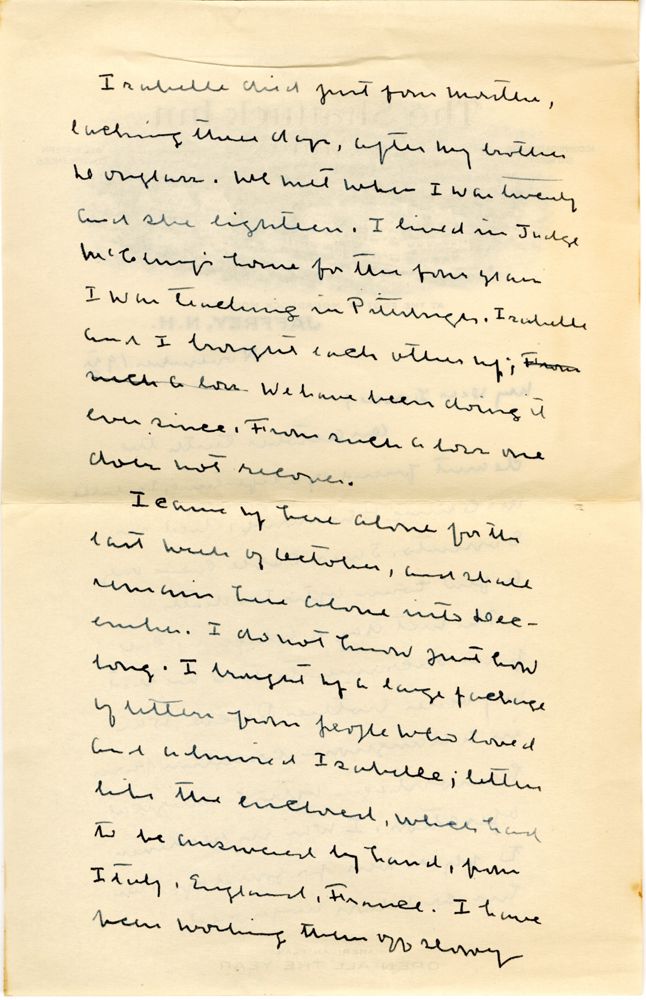 Isabelle died just four months,
lacking three days, after my brother
Douglass. We met when I was twenty
and she eighteen. I lived in Judge
McClung's home for the four years
I was teaching in Pittsburgh. Isabelle
and I brought each other up; From
such a loss We have been doing it
ever since. From such a loss one
does not recover.
I came up here alone for the
last week of October, and shall
remain here alone into Dec-
ember. I do not know just how
long. I brought up a large package
of letters from people who loved
and admired Isabelle; letters
like the enclosed, which had
to be answered by hand, from
Italy, England, France. I have
been working them off slowly